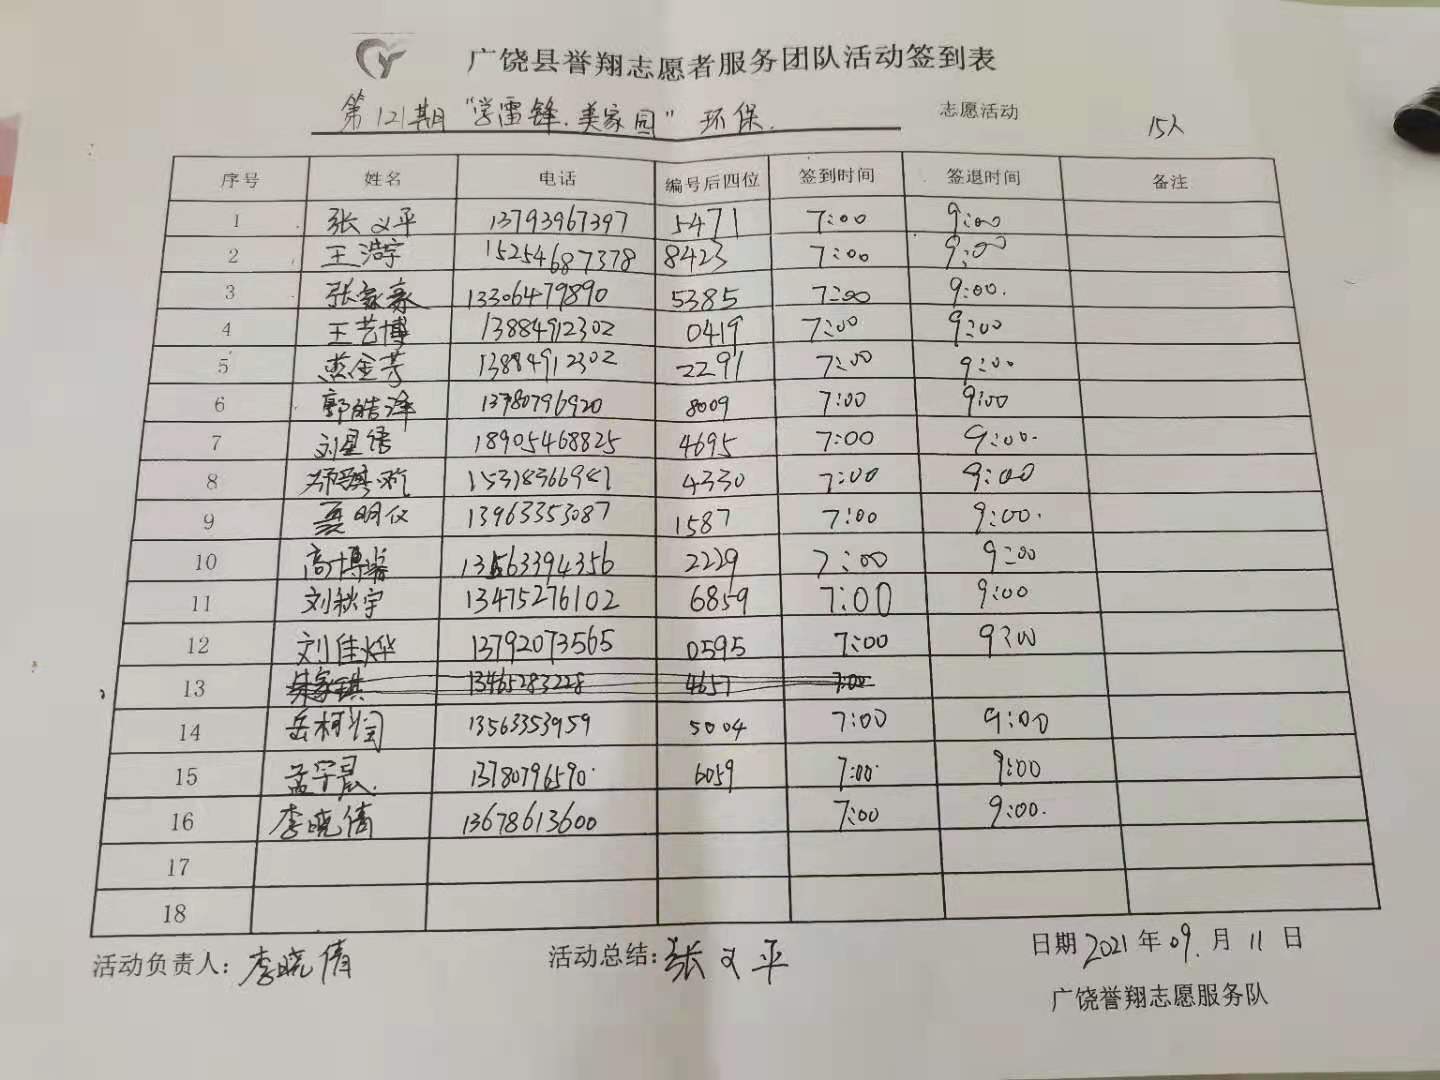 广饶县誉翔志愿者服务团队活动签到表
第121期"学雷锋.美家园"环保. 志愿活动 15人
序号 姓名 电话 编号后四位 签到时间 签退时间 备注
1 张义平 13793967397 5471 7:00 9:00
2 王浩宇 15254687378 8423 7:00 9:00
3 张家豪 13306479890 5385 7:00 9:00.
4 王艺博 13884912302 0419 7:00 9:00
5 燕金芳 13884912302 2291 7:00 9:00
6 郭皓泽 13780796920 8009 7:00 9:00
7 刘星语 18905468825 4695 7:00 9:00.
8 15318366981 4330 7:00 9:00
9 聂明仪 13963353087 1587 7:00 9:00.
10 高博睿 13563394356 2229 7:00 9:00
11 刘秋宇 13475276102 6859 7:00 9:00
12 刘佳烨 13792073565 0595 7:00 9:00
13 13465283228 4657 7:00
14 岳柯润 13563353959 5004 7:00 9:00
15 孟宇晨. 13780796590. 6059 7:00 9:00
16 李晓倩 13678613600 7:00 9:00.
17
18
活动负责人：李晓倩 活动总结：张义平 日期 2021 年 09. 月 11 日
广饶誉翔志愿服务队